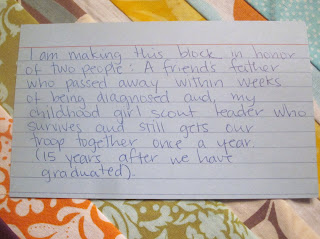 I am making this block in honor
of two people: A friends father
who passed away within weeks
of being diagnosed and, my
childhood girl scout leader who
survives and still gets our
troop together once a year.
(15 years after we have
graduated).